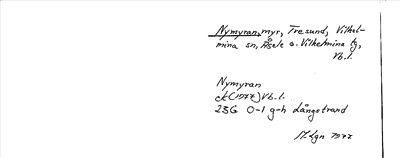 Nymyran, myr, Tresund, Vilhel-
mina sn, Åsele o. Vilhelmina tg,
Vb.l.
Nymyran
(1977) Vb.l.
23G 0-1 g-h Långstrand
1977